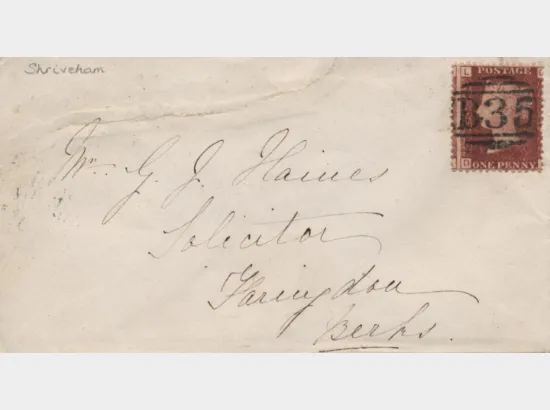 Shriveham
L
POSTAGE
B35
D
ONE PENNY
L
Mr. G. J. Haines
Solicitor
Faringdon
Berks.